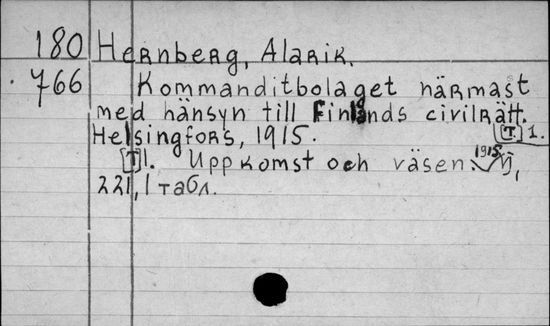 180 Hernberg, Alarik.
766 Kommanditbolaget närmast
med hänsyn till Finlands civilrätt.
Helsingfors, 1915. [T.] 1.
[T] 1. Uppkomst och väsen. 1915.
221, 1 табл.